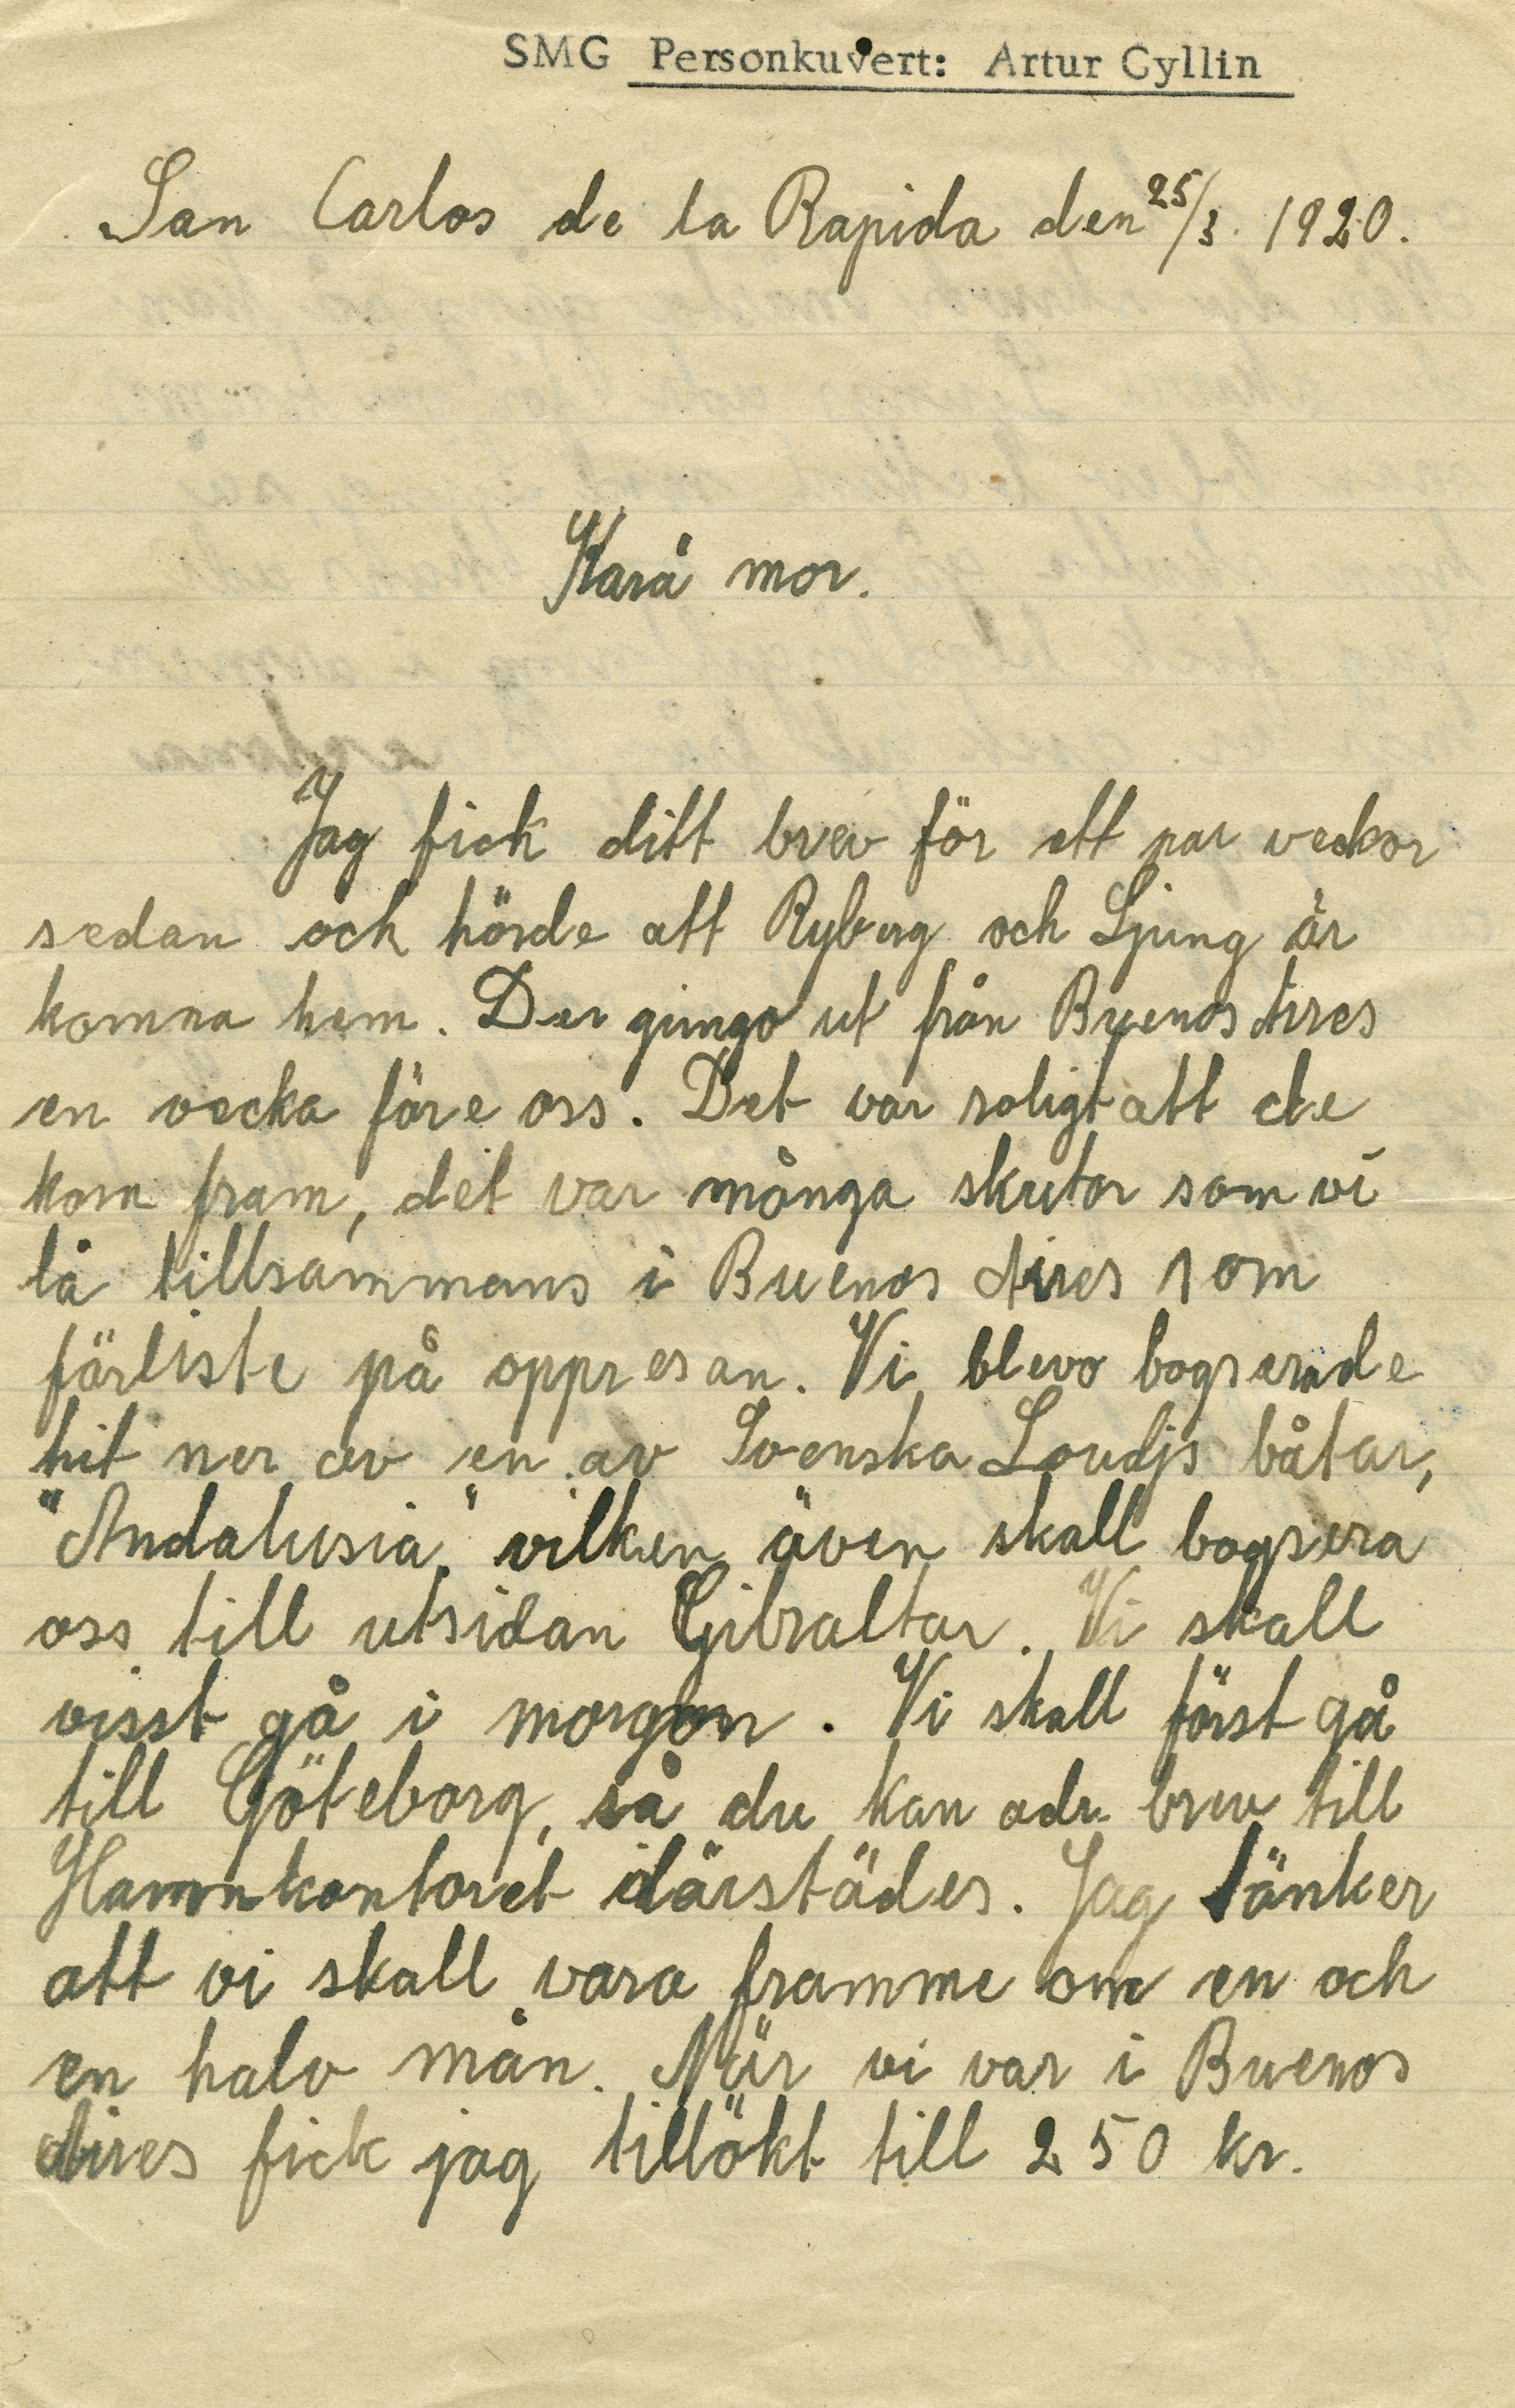 SMG Personkuvert: Artur Gyllin
San Carlos de la Rapida den 25/3. 1920.
Kära mor.
Jag fick ditt brev för ett par veckor
sedan och hörde att Ryberg och Ljung är
komna hem. Der gingo ut från Buenos Aires
en vecka före oss. Det var roligt att de
kom fram, det var många skutor som vi
lå tillsammans i Buenos Aires som
förliste på oppresan. Vi blevo bogserade
hit ner av en av Svenska Loydjs båtar,
"Andalusia," vilken även skall bogsera
oss till utsidan Gibraltar. Vi skall
visst gå i morgon. Vi skall först gå
till Göteborg, så du kan adr. brev till
Hamnkontoret därstädes. Jag tänker
att vi skall vara framme om en och
en halv mån. När vi var i Buenos
Aires fick jag tillökt till 250 kr.